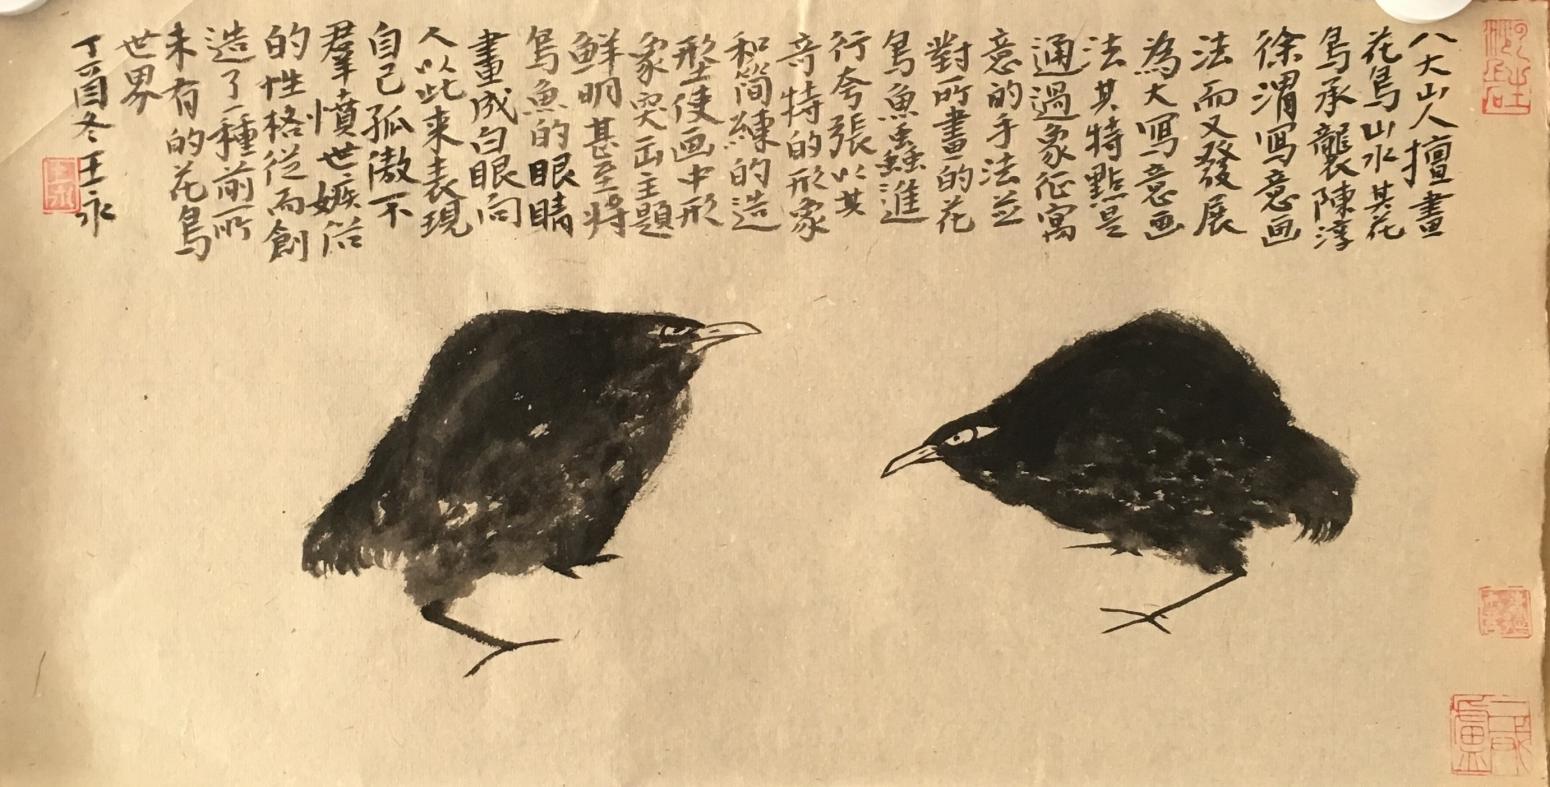 八大山人擅畫
花鳥山水其花
鳥承襲陳淳
徐渭寫意画
法而又發展
為大寫意画
法其特點是
通過象征寓
意的手法並
對所畫的花
鳥魚蟲進
行夸張以其
奇特的形象
和簡練的造
型使画中形
象突出主題
鮮明甚至將
鳥魚的眼睛
畫成白眼向
人以此來表現
自己孤傲不
羣憤世嫉俗
的性格從而創
造了一種前所
未有的花鳥
世界
丁酉冬王永
王永